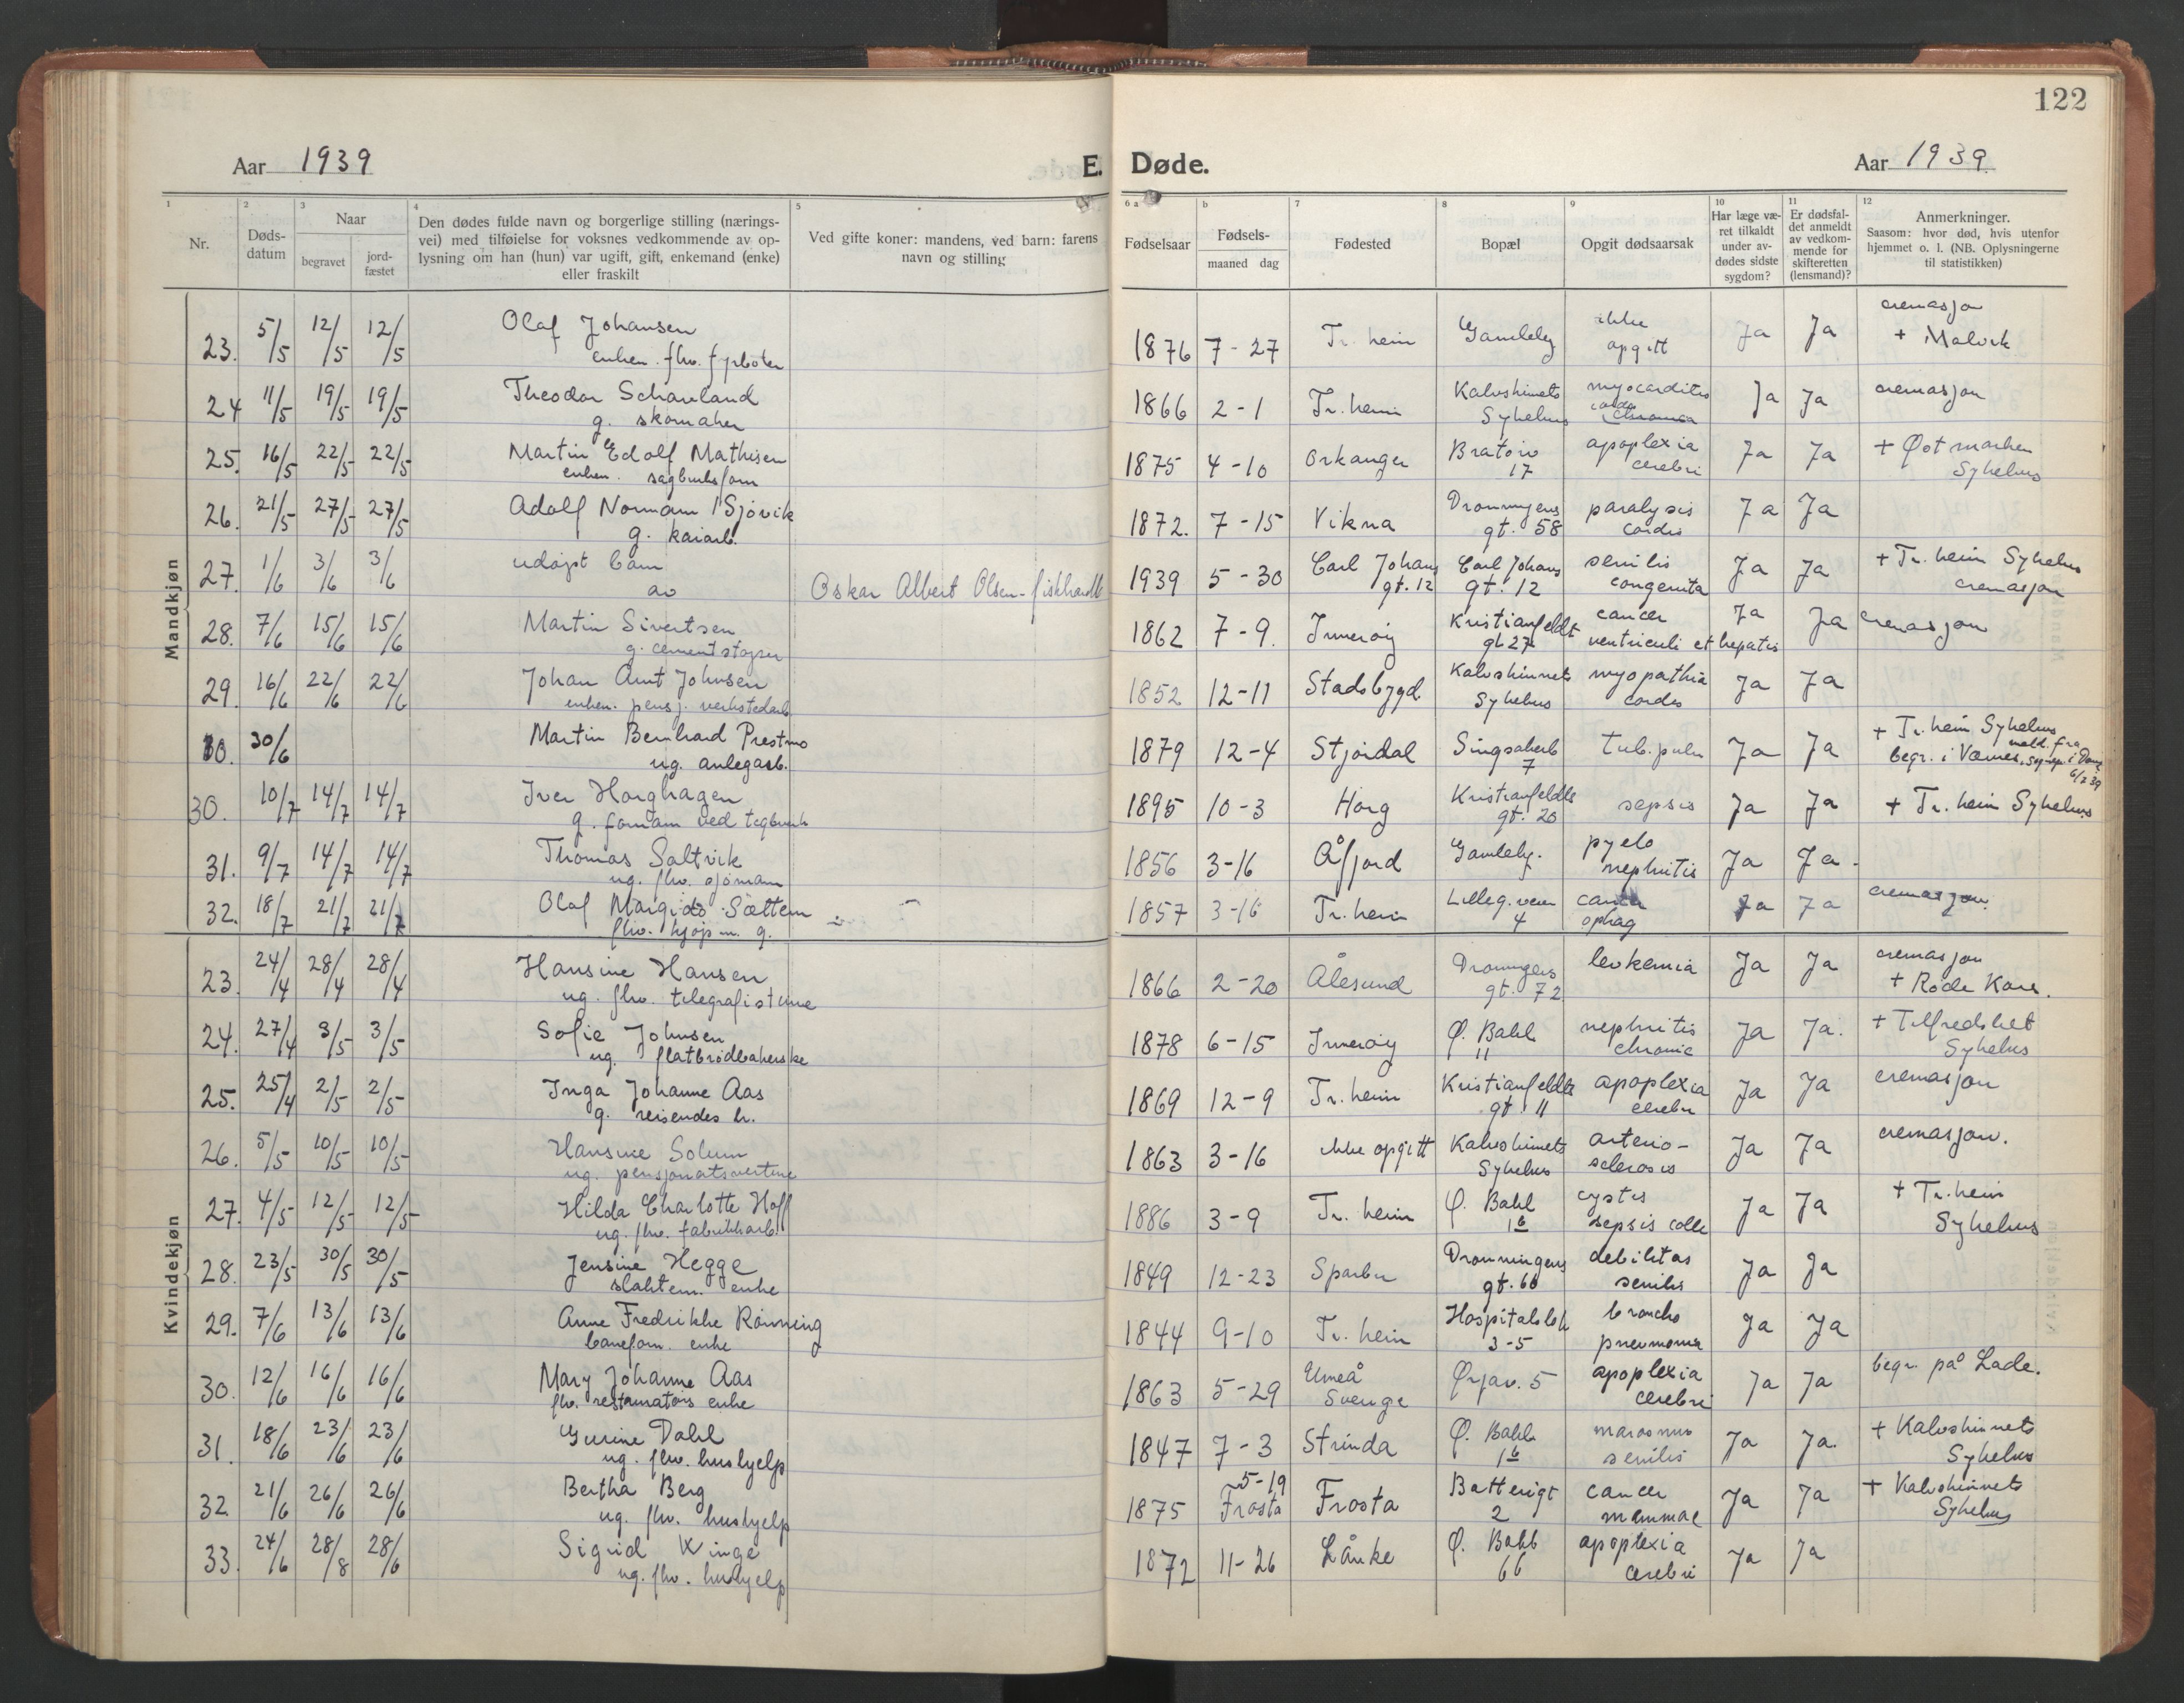 122
Aar 1939
E. Døde.
Aar 1939.
1 2 3 4 5 6 a b 7 8 9 10 11 12
Nr.
Døds-
datum
Naar
begravet
jord-
fæstet
Den dødes fulde navn og borgerlige stilling (nærings-
vei) med tilføielse for voksnes vedkommende av op-
lysning om han (hun) var ugift, gift, enkemand (enke)
eller fraskilt
Ved gifte koner: mandens, ved barn: farens
navn og stilling
Fødselsaar
Fødsels-
maaned dag
Fødested
Bopæl
Opgit dødsaarsak
Har læge væ-
ret tilkaldt
under av-
dødes sidste
sygdom?
Er dødsfal-
det anmeldt
av vedkom-
mende for
skifteretten
(lensmand)?
Anmerkninger.
Saasom: hvor død, hvis utenfor
hjemmet o. l. (NB. Oplysningerne
til statistikken)
Mandkjøn
23. 5/5 12/5 12/5 Olaf Johansen 1876 7-27 Tr. heim Gamleby ikke Ja Ja cremasjon
enkem. fhv. opgitt + Malvik
24 11/5 19/5 19/5 Theodor 1866 2-1 Tr. heim Kalvskinnets myocarditis Ja Ja cremasjon
g. skomaker Sykehus
25. 16/5 22/5 22/5 Martin Edolf Mathisen 1875 4-10 Orkanger Bratørv apoplexia Ja Ja + Østmarken
enkem. sagbruksform 17 cerebri Sykehus
26. 21/5 27/5 27/5 Adolf Normann Sjøvik 1872. 7-15 Vikna Dronningens paralysis Ja Ja
g. kaiarb. gt. 58 cordis
27. 1/6 3/6 3/6 udøpt barn 1939 5-30 Carl Johans Carl Johans senilis Ja Ja + Tr. heim Sykehus
av Oskar Albert Olsen - fiskhandl gt. 12 gt. 12 congenita cremasjon
28. 7/6 15/6 15/6 Martin Sivertsen 1862 7-9. Inderøy Kristianfeldt cancer Ja Ja cremasjon
g. cementstøper gt 27 ventriculi et hepatis
29. 16/6 22/6 22/6 Johan Arnt Johnsen 1852 12-11 Stadsbygd Kalvskinnets myopathia Ja Ja
enkem. pensj. verkstedarb Sykehus cordis
30. 30/6 Martin Bernhard Prestmo 1879 12-4 Stjørdal Singsakerb tub. pulm Ja Ja + Tr. heim Sykehus
ug. anlegarb. 7 begr. i Værnes. meld. fra
6/7 39
30. 10/7 14/7 14/7 Iver Horghagen 1895 10-3 Horg Kristianfeldts sepsis Ja Ja + Tr. heim Sykehus
g. formann ved teglverk gt. 20
31. 9/7 14/7 14/7 Thomas Saltvik 1856 3-16 Åfjord Gamleby. pyelo Ja Ja -
ug. fhv. sjømann nephritis
32. 18/7 21/7 21/7 Olaf Sættem 1857 3-16 Tr. heim Lilleg. veien cancer Ja Ja cremasjon.
fhv. kjøpm. g. 4 ophag
Kvindekjøn
23. 24/4 28/4 28/4 Hansine Hansen 1866 2-20 Ålesund Dronningens levkemia Ja Ja cremasjon
ug. fhv. telegrafistinne gt. 72 + Røde Kors.
24. 27/4 3/5 3/5 Sofie Johnsen 1878 6-15 Inderøy Ø. Bakl. nephritis Ja Ja. + Tilfredshet
ug. flatbrødbakerske 11 chronic Sykehus
25. 25/4 2/5 2/5 Inga Johanne Aas 1869 12-9 Tr. heim Kristianfeldts apoplexia Ja Ja cremasjon
g. reisendes h. gt. 11 cerebri
26. 5/5 10/5 10/5 Hansine Solum 1863 3-16 ikke opgitt Kalvskinnets arterio- Ja Ja cremasjon.
ug. pensjonatsvertinne Sykehus sclerosis
27. 4/5 12/5 12/5 Hilda Charlotte Hoff 1886 3-9 Tr. heim Ø. Bakl cystis Ja Ja + Tr. heim
ug. fhv. fabrikkarb. 1b sepsis Sykehus
28. 23/5 30/5 30/5 Jensine Hegge 1849 12-23 Sparbu Dronningens debilitas Ja Ja
slakterm. enke gt. 60 senilis
29. 7/6 13/6 13/6 Anne Fredrikke Rønning 1844 9-10 Tr. heim Hospitalsløk broncho Ja Ja
baneform. enke 3-5 pneumonia
30. 12/6 16/6 16/6 Mary Johanne Aas 1863 5-29 Umeå Ørjav. 5 apoplexia Ja Ja begr. på Lade.
fhv. restauratørs enke Sverige cerebri
31. 18/6 23/6 23/6 Gurine Dahl 1847 7-3 Strinda Ø. Bakl. marasmus Ja Ja. + Kalvskinnets
ug. fhv. hushjelp 1b senilis Sykehus
32 21/6 26/6 26/6 Bertha Berg 1875 5-19 Frosta Frosta Batterigt cancer Ja Ja + Kalvskinnets
ug. fhv. hushjelp 2 mammae Sykehus
33. 24/6 28/8 28/6 Sigrid Winge 1872 11-26 Lånke Ø. Bakl apoplexia Ja Ja
ug. fhv. hushjelp 66 cerebri